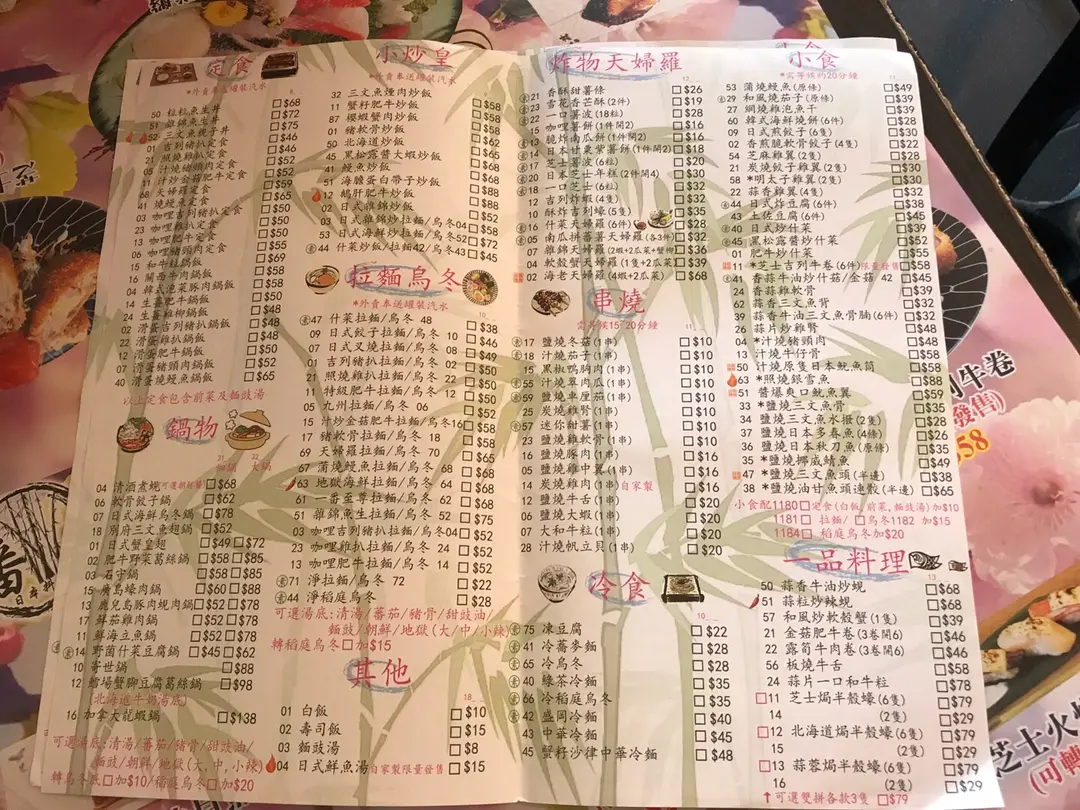 定食
*外賣奉送罐裝汽水
50 粒粒魚生丼 $68
51 雜錦魚生丼 $72
52 三文魚親子丼 $75
01 吉列豬扒定食 $46
21 照燒雞扒定食 $52
05 汁燒豬頸肉定食
11 汁炒金菇肥牛定食
68 天婦羅定食
41 燒鰻魚定食 $65
03 咖喱吉列豬扒定食 $50
23 咖喱雞扒定食 $50
13 咖喱肥牛定食 $50
06 咖喱豬頸肉定食
15 和牛粒鍋飯 $69
16 關西牛肉鍋飯 $58
04 韓式泡菜豚肉鍋飯 $50
14 生薑肥牛鍋飯 $50
24 生薑雞柳鍋飯 $48
02 滑蛋吉列豬扒鍋飯 $48
22 滑蛋雞扒鍋飯 $48
12 滑蛋肥牛鍋飯 $50
07 滑蛋豬頸肉鍋飯 $52
40 滑蛋燒鰻魚鍋飯 $65
以上定食包含前菜及麵豉湯
鍋物
04 清酒煮蜆 $68
06 軟骨餃子鍋 $62
07 日式海鮮烏冬鍋 $78
18 別府三文魚翅鍋 $52
01 日式蟹皇翅 $49 $72
02 肥牛野菜葛絲鍋 $58 $85
03 石守鍋 $58 $85
15 廣島蠔肉鍋 $60 $88
13 鹿兒島豚肉蜆肉鍋 $52 $78
17 鮮茄雞肉鍋 $52 $78
11 鮮海立魚鍋 $52 $78
14 野菌什菜豆腐鍋 $45 $62
10 寄世鍋 $88
12 鱈場蟹腳豆腐葛絲鍋 $98
(北海道牛奶湯底)
16 加拿大龍蝦鍋 $138
可選湯底:清湯/蕃茄/豬骨/甜豉油/
麵豉/朝鮮/地獄(大,中,小辣)
轉烏冬底 加$10/稻庭烏冬 加$20
小炒皇
*外賣奉送罐裝汽水
32 三文魚燻肉炒飯
11 蟹籽肥牛炒飯 $58
87 櫻蝦蟹肉炒飯 $58
01 豬軟骨炒飯 $58
50 北海道炒飯 $62
45 黑松露醬大蝦炒飯 $65
41 鰻魚炒飯 $65
51 海膽蛋白帶子炒飯 $68
12 鵝肝肥牛炒飯 $88
02 日式雜錦炒飯 $88
03 日式雜錦炒拉麵/烏冬04 $52
53 日式海鮮炒拉麵/烏冬52 $72
44 什菜炒飯/拉麵42/烏冬43 $45
拉麵烏冬
*外賣奉送罐裝汽水
47 什菜拉麵/烏冬 48 $38
09 日式餃子拉麵/烏冬 10 $46
07 日式叉燒拉麵/烏冬 08 $49
01 吉列豬扒拉麵/烏冬 02 $50
21 照燒雞扒拉麵/烏冬 22 $50
11 特級肥牛拉麵/烏冬 12 $50
05 九州拉麵/烏冬 06 $52
15 汁炒金菇肥牛拉麵/烏冬16 $58
17 豬軟骨拉麵/烏冬 18 $58
69 天婦羅拉麵/烏冬 70 $65
67 蒲燒鰻魚拉麵/烏冬 68 $68
63 地獄海鮮拉麵/烏冬 64 $68
61 一番至尊拉麵/烏冬 62 $68
51 雜錦魚生拉麵/烏冬 52 $75
03 咖喱吉列豬扒拉麵/烏冬04 $52
23 咖喱雞扒拉麵/烏冬 24 $52
13 咖喱肥牛拉麵/烏冬 14 $52
71 淨拉麵/烏冬 72 $22
44 淨稻庭烏冬 $28
可選湯底:清湯/蕃茄/豬骨/甜豉油/
麵豉/朝鮮/地獄(大/中/小辣)
轉稻庭烏冬 加$15
其他
01 白飯 $10
02 壽司飯 $15
03 麵豉湯 $8
04 日式鮮魚湯 自家製限量發售 $15
炸物天婦羅
21 香酥甜薯條 $26
23 雪花香芒酥(2件) $19
22 一口薯波(18粒) $28
15 咖喱薯餅(1件開2) $16
13 脆炸南瓜餅(1件開2) $16
14 日本甘夷紫薯餅(1件開2) $18
17 芝士薯波(6粒) $20
20 日本芝士年糕(2件開4) $30
18 一口芝士(6粒) $32
12 吉列炸蝦(4隻) $32
10 酥炸吉列蠔(5隻) $35
16 什菜天婦羅(6件) $28
05 南瓜拼蕃薯天婦羅(各3件) $32
07 雜錦天婦羅 $36
04 軟殼蟹天婦羅(1隻+2瓜菜) $39
02 海老天婦羅(4蝦+2瓜菜) $68
串燒
需等候15-20分鐘
17 鹽燒冬菇(1串) $10
18 汁燒茄子(1串) $10
15 黑椒鴨胸肉(1串) $10
55 汁燒翠肉瓜(1串) $10
59 鹽燒車厘茄(1串) $10
25 炭燒雞腎(1串) $10
57 迷你甜薯(1串) $10
23 鹽燒雞軟骨(1串) $10
16 鹽燒豚肉(1串) $16
05 鹽燒雞中翼(1串) $16
14 炭燒雞肉(1串)自家製 $16
12 鹽燒牛舌(1串) $20
06 鹽燒大蝦(1串) $20
07 大和牛粒(1串) $20
28 汁燒帆立貝(1串) $20
冷食
75 凍豆腐 $22
41 冷蕎麥麵 $28
65 冷烏冬 $28
40 綠茶冷麵 $35
66 冷稻庭烏冬 $35
42 盛岡冷麵 $40
43 中華冷麵 $45
45 蟹籽沙律中華冷麵 $48
小食
*需等候約20分鐘
53 蒲燒鰻魚(原條) $49
29 和風燒茄子(原條) $39
27 炯燒雞泡魚干 $39
60 韓式海鮮燒餅(6件) $28
09 日式煎餃子(6隻) $30
02 香煎脆軟骨餃子(4隻) $22
54 芝麻雞翼(2隻) $28
21 炭燒餃子雞翼(2隻) $30
58 *明太子雞翼(2隻) $30
22 蒜香雞翼(4隻) $32
44 日式炸豆腐(6件) $38
43 土佐豆腐(6件) $45
40 日式炒什菜 $39
45 黑松露醬炒什菜 $39
01 肥牛炒什菜
11 *芝士吉列牛卷(6件)限量發售 $58
41 香蒜牛油炒什菇/金菇 42 $45
24 香蒜雞軟骨 $39
62 蒜香三文魚背 $32
39 蒜香牛油三文魚骨腩(6件) $32
26 蒜片炒雞腎 $48
04 *汁燒豬頸肉 $48
13 汁燒牛仔骨 $58
50 汁燒原隻日本魷魚筒 $58
63 *照燒銀雪魚 $88
51 醬爆爽口魷魚翼 $59
33 *鹽燒三文魚骨 $35
34 鹽燒三文魚水撥(2隻) $28
37 鹽燒日本多春魚(4條) $26
36 鹽燒日本秋刀魚(原條) $35
35 *鹽燒挪威鯖魚 $49
47 *鹽燒三文魚頭(半邊) $38
38 *鹽燒油甘魚頭連骰(半邊) $65
小食配1180 定食(白飯,前菜,麵豉湯)加$10
1181 拉麵/ 烏冬1182 加$15
1184 稻庭烏冬加$20
一品料理
50 蒜香牛油炒蜆 $68
51 蒜粒炒辣蜆 $68
57 和風炒軟殼蟹(1隻) $39
21 金菇肥牛卷(3卷開6) $46
22 露荀牛肉卷(3卷開6) $46
56 板燒牛舌 $58
24 蒜片一口和牛粒 $78
11 芝士焗半殼蠔(6隻) $79
14 (2隻) $29
12 北海道焗半殼蠔(6隻) $79
15 (2隻) $29
13 蒜蓉焗半殼蠔(6隻) $79
16 (2隻) $29
↑可選雙拼各款3隻 $79
牛卷
發售)
58
芝士火
(可轉
番